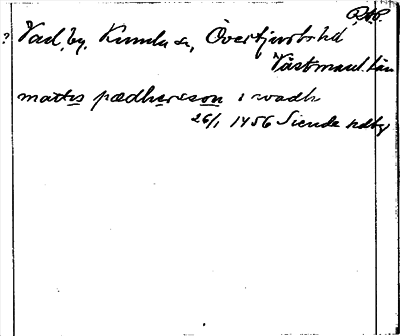 RAP.
? Vad, by, Kumla sn, Övertjurbo hd
Västmanl. län
mattis pædhersson i wadh
26/1 1456 Siende hdbg